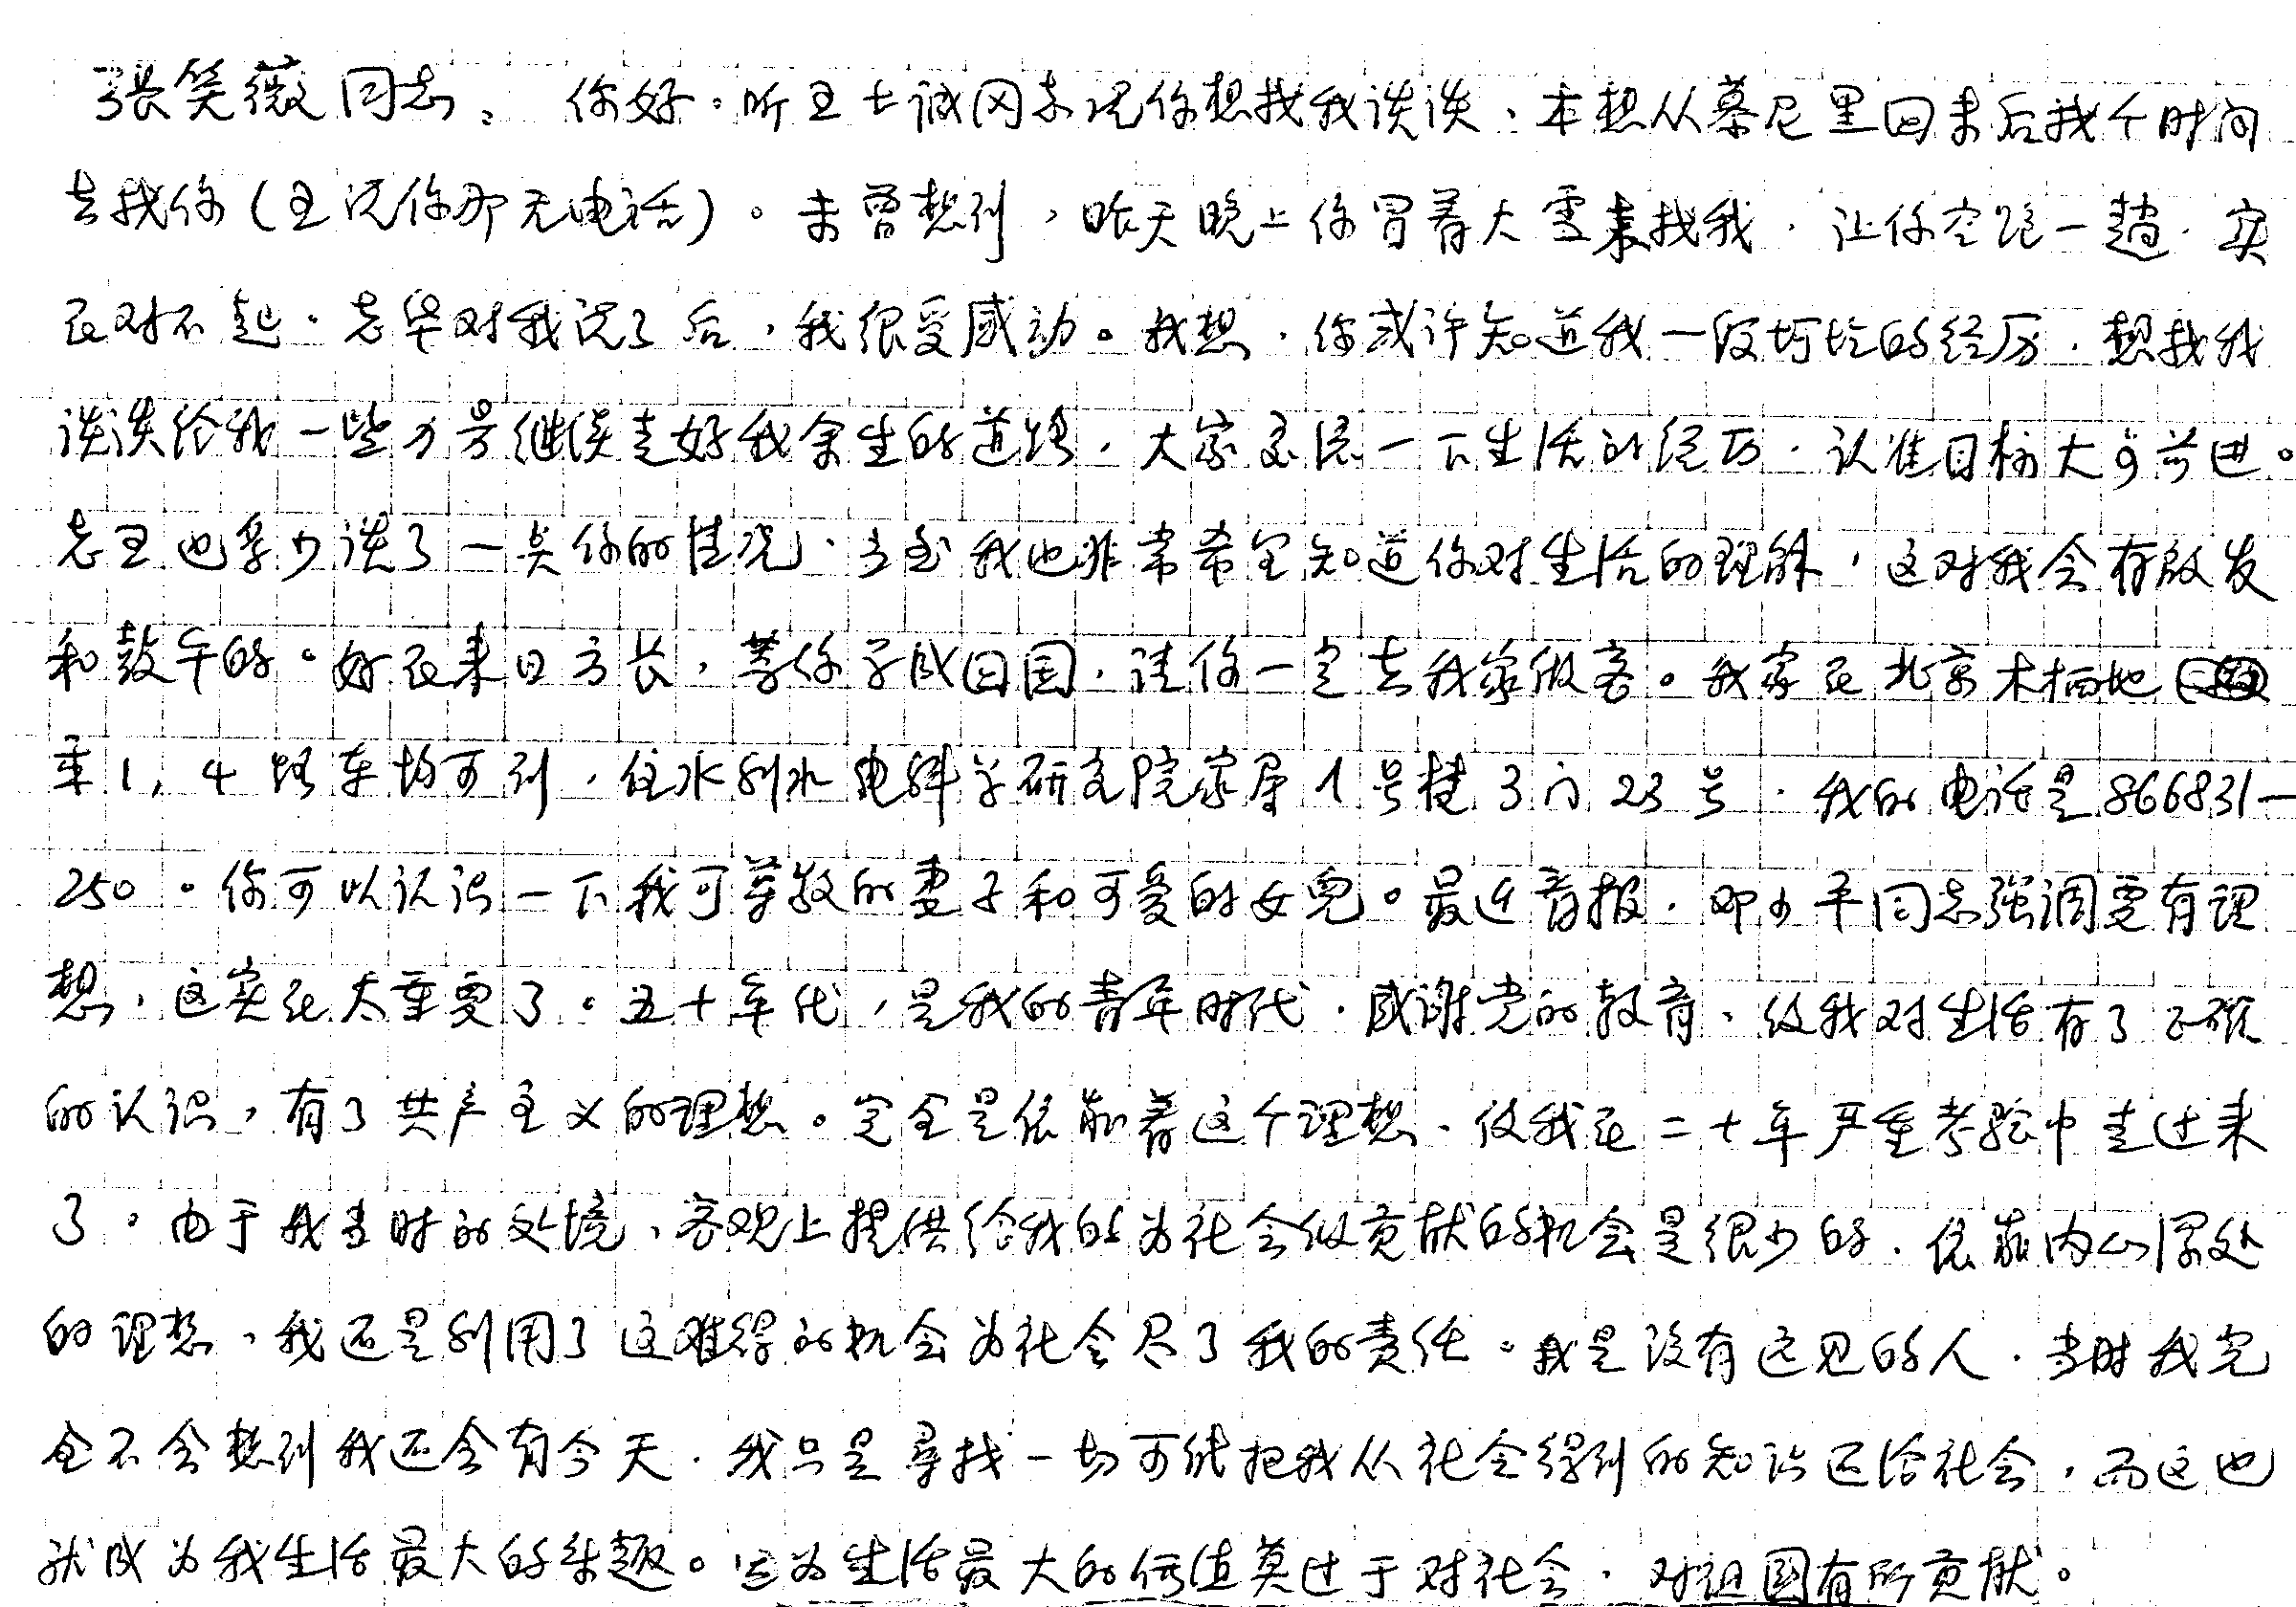 張笑薇同志: 你好。听王士诚同志说你想找我谈谈,本想从慕尼黑回来后找个时间
去找你(王说你那无电话)。未曾想到,昨天晚上你冒着大雪来找我,让你空跑一趟,实
在对不起。老毕对我说了后,我很受感动。我想,你或许知道我一段坷坎的经历,想找我
谈谈给我一些力量继续走好我余生的道路,大家交流一下生活的经历,认准目标大步前进。
老王也多少谈了一点你的情况,为此我也非常希望知道你对生活的理解,这对我会有启发
和鼓午的。好在来日方长,等你学成回国,请你一定去我家做客。我家在北京木樨地
乘1,4路车均可到,住水利水电科学研究院家属1号楼3门23号,我的电话是866831—
250。你可以认识一下我可尊敬的妻子和可爱的女儿。最近看报,邓小平同志强调要有理
想,这实在太重要了。五十年代,是我的青年时代,感谢党的教育,使我对生活有了正确
的认识,有了共产主义的理想。完全是依靠着这个理想,使我在二十年严重考验中走过来
了。由于我当时的处境,客观上提供给我的为社会做贡献的机会是很少的,依靠内心深处
的理想,我还是利用了这难得的机会为社会尽了我的责任。我是没有远见的人,当时我完
全不会想到我还会有今天,我只是寻找一切可能把我从社会得到的知识还给社会,而这也
就成为我生活最大的乐趣。因为生活最大的价值莫过于对社会,对祖国有所贡献。